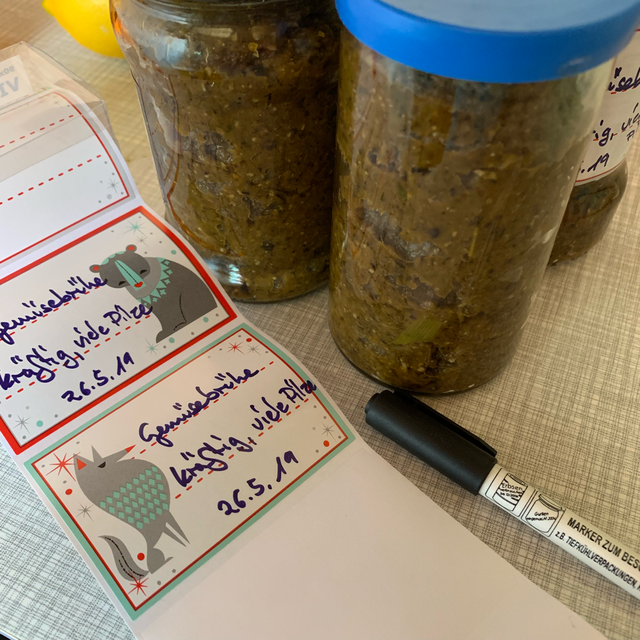 Gemüsebrühe
kräftig, viele Pilze
26.5.19
Gemüsebrühe
kräftig, viele Pilze
26.5.19
Erbsen
Gurken
MARKER ZUM BES
z.B. TIEFKÜHLVERPACKUNGEN
.19